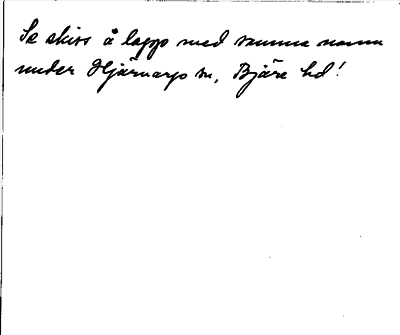 Se skiss å lapp med samma namn
under Hjärnarps sn, Bjäre hd!